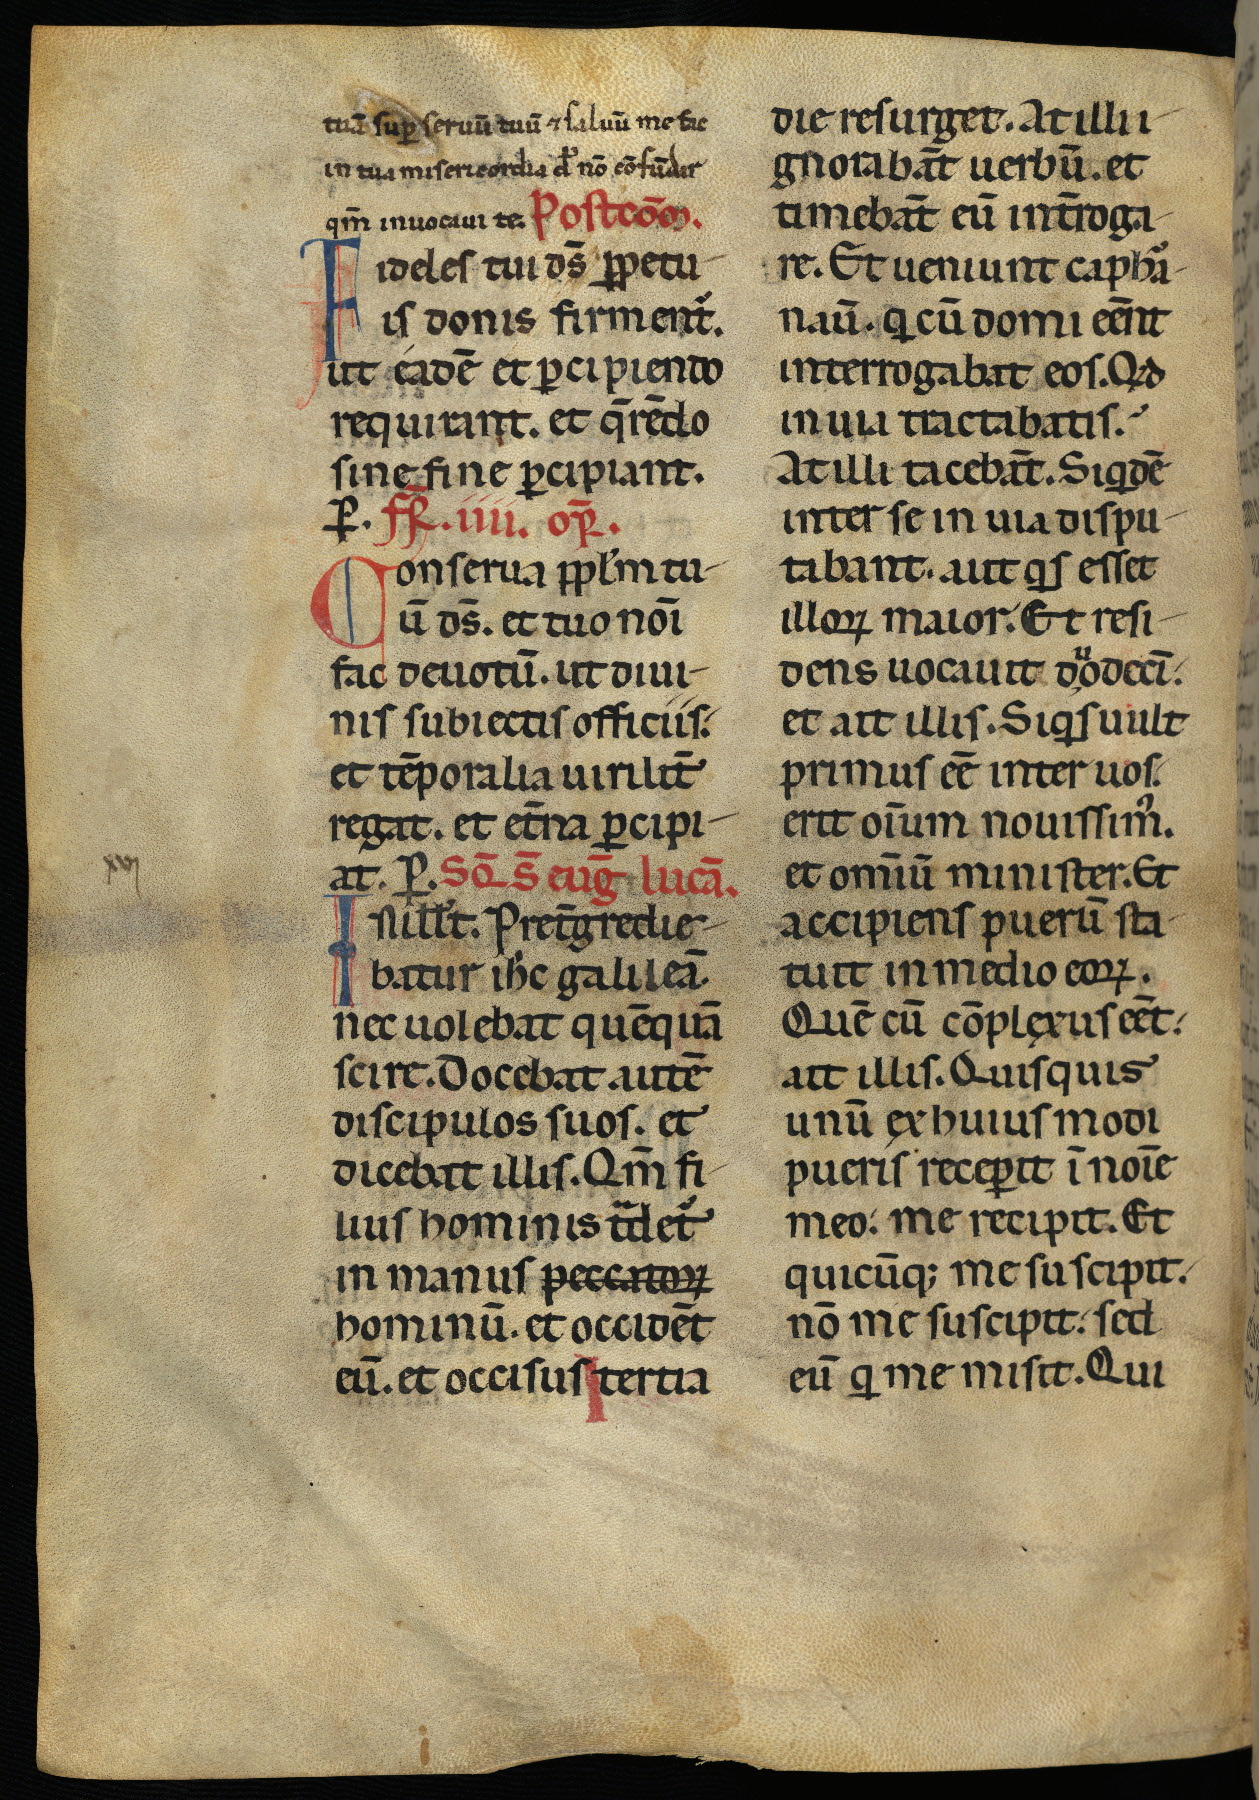 tuā sup̄ seruū tuū ⁊ saluū me fac
in tua misericordia dn̄ nō cōfūdar
qm̄ inuocaui te. Postcōm̄.
Fideles tui ds̄ ꝑpetu-
is donis firment᷑.
ut eadē et ꝑcipiendo
requirant. et q̄rēdo
sine fine ꝑcipiant.
ꝑ. fr̄. iiii. op̄.
Conserua ppl̄m tu-
ū ds̄. et tuo noī
fac deuotū. ut diui-
nis subiectis officiis:
et tēporalia uirilit̄
regat. et et̄na ꝑcipi-
at. ꝑ. Sc̄d S̄ euḡ lucā.
xvi
In ill̄ t̄. Pret̄gredie-
batur ih̄c galileā.
nec uolebat quēquā
scire. Docebat autē
discipulos suos. et
dicebat illis. Qm̄ fi-
lius hominis t̄det᷑
in manus peccatoꝝ
hominū. et occidēt
eū. et occisus tertia
die resurget. At illi i-
gnorabāt uerbū. et
timebāt eū int̄roga-
re. Et ueniunt caphā-
naū. qi cū domi eēnt
interrogabat eos. Qd
in uia tractabatis.
At illi tacebāt. Siqdē
inter se in uia dispu-
tabant. aut qis esset
illoꝝ maior. Et resi-
dens uocauit duodecī.
et ait illis. Siqis uult
primus eē inter uos.
erit oīum nouissim᷒.
et omīū minister. Et
accipiens puerū sta-
tuit in medio eoꝝ.
Quē cū cōplexus eēt.
ait illis. Quisquis
unū ex huiusmodi
pueris receꝑit ī noīe
meo: me recipit. Et
quicūqꝫ me suscipit.
nō me suscipit: sed
eū qi me misit. Qui